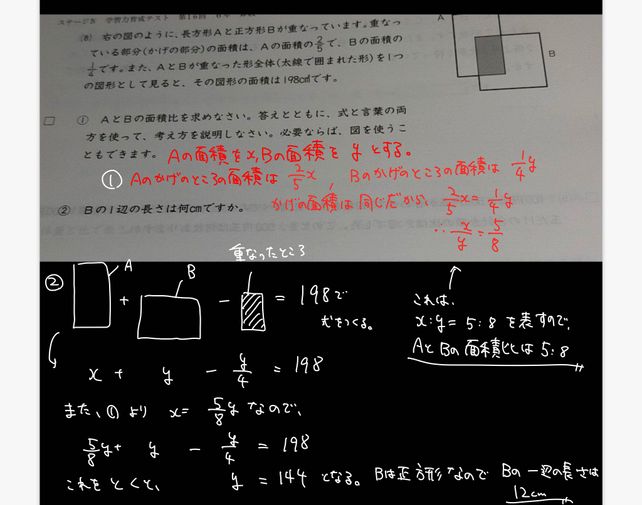 ステージⅣ 学習力育成テスト 第10回
(8) 右の図のように、長方形Aと正方形Bが重なっています。重なっ
ている部分(かげの部分)の面積は、Aの面積の2/5で、Bの面積の
1/4です。また、AとBが重なった形全体(太線で囲まれた形)を1つ
の図形として見ると、その図形の面積は198c㎡です。
A
B
① AとBの面積比を求めなさい。答えとともに、式と言葉の両
方を使って、考え方を説明しなさい。必要ならば、図を使うこ
ともできます。
Aの面積をx,Bの面積をyとする。
① Aのかげのところの面積は 2/5x, Bのかげのところの面積は 1/4y
かげの面積は同じだから、2/5x=1/4y
∴ x/y=5/8
② Bの1辺の長さは何cmですか。
重なったところ
② A + B - = 198で
式をつくる。
これは、
x:y=5:8を表すので、
AとBの面積比は5:8
x + y - y/4 = 198
また、①より x= 5/8y なので、
5/8y + y - y/4 = 198
これをとくと、 y = 144 となる。Bは正方形なので Bの一辺の長さは
12cm